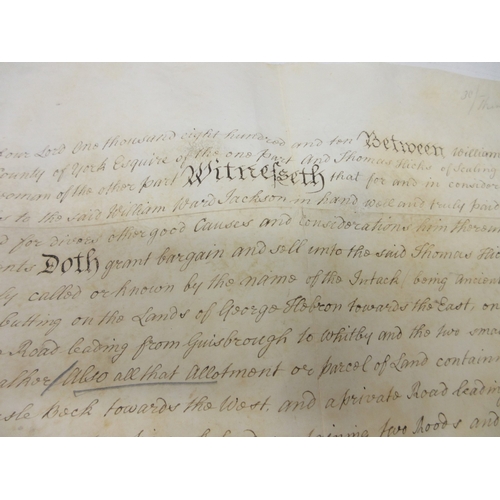 our Lord One thousand eight hundred and ten Between William
County of York Esquire of the one part and Thomas Hicks of Sealing
yeoman of the other part Witnesseth that for and in consider
to the said William Ward Jackson in hand well and truly paid
for divers other good Causes and considerations him thereun
ents Doth grant bargain and sell unto the said Thomas
ly called or known by the name of the Intack being ancien
butting on the Lands of George Hebron towards the East, on
Road leading from Guisbrough to Whitby and the two smal
alker / Also all that Allotment or parcel of Land contain
Beck towards the West, and a private Road leading
two Roods and